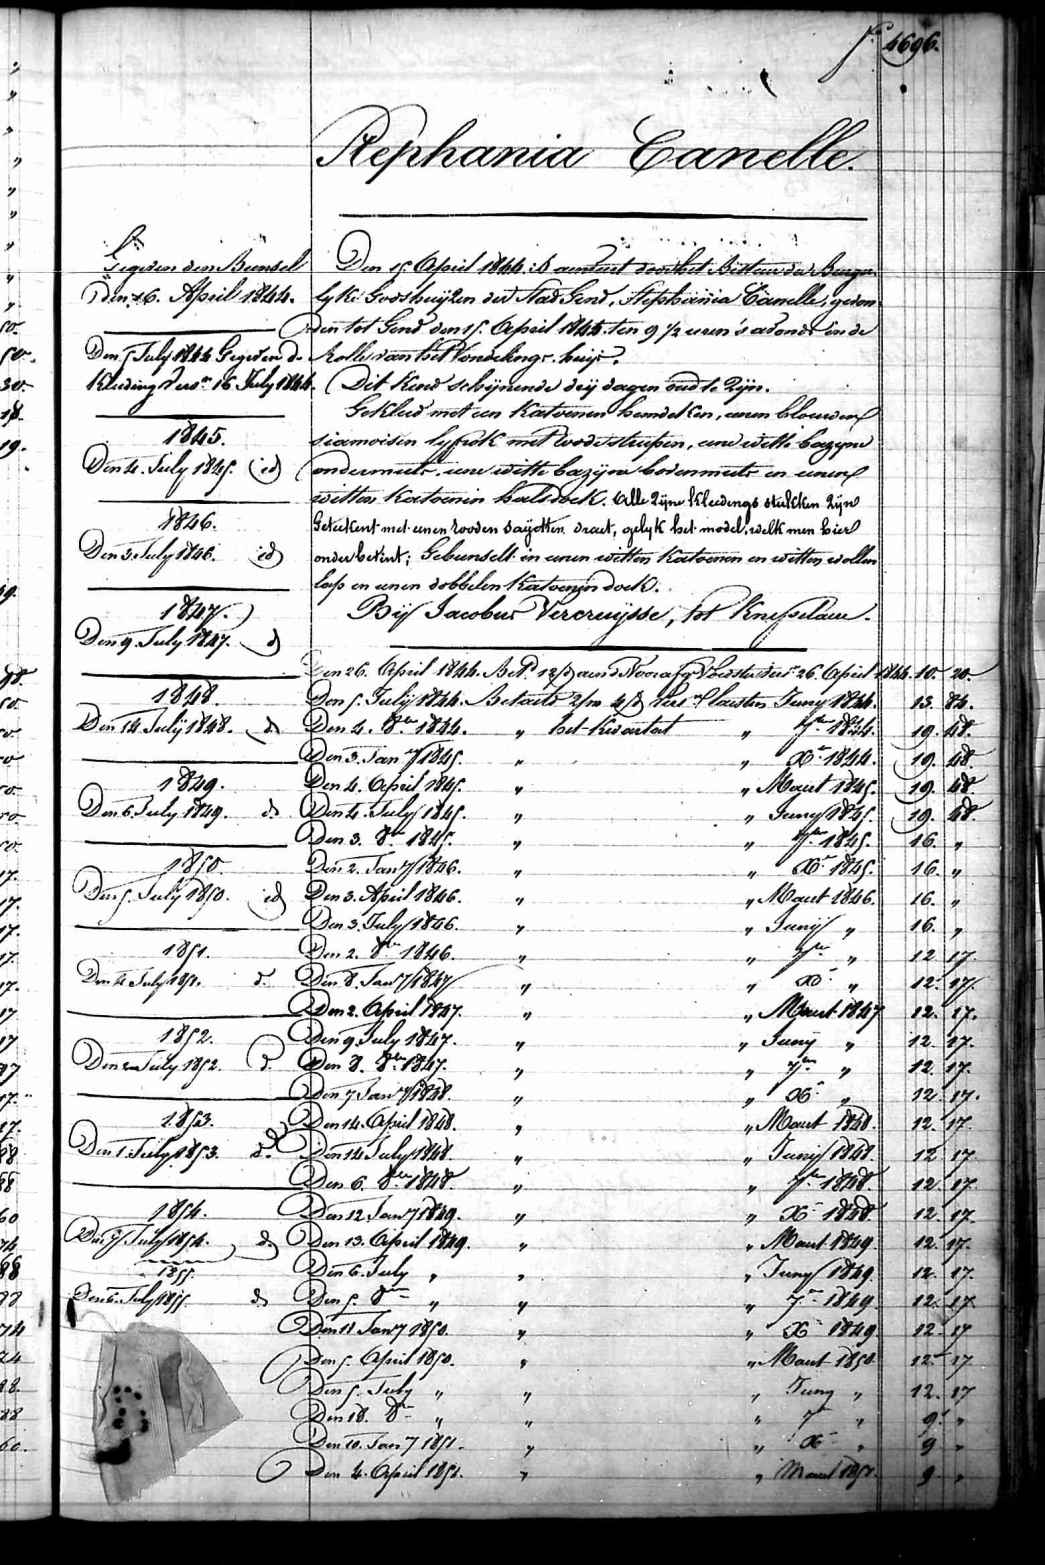 fo. 4696.
Stephania Canelle.
Gegeven den Bunsel
den 26. April 1844.
Den 5 July 1844 Gegeven de
Kleding vers. 16 July 1844.
1845.
Den 4. July 1845. id
1846.
Den 3. July 1846. id
1847.
Den 9. July 1847. id
1848.
Den 14. July 1848. id
1849.
Den 6. July 1849. id
1850.
Den 5. July 1850. id
1851.
Den 4 July 1851. id
1852.
Den 2 July 1852. id
1853.
Den 1. July 1853. id
1854.
Den 7 July 1854. id
1855.
Den 6. July 1855. id
Den 15 April 1844: is aenveert door het Bestuer der Burger-
lyke Godshuijzen der Stad Gend, Stephania Canelle, gevon-
den tot Gend den 15. April 1844. ten 9 1/2 uren 's avonds in de
Rolle van het Vondelings-huijs.
Dit Kind schijnende drij dagen oud te Zijn.
Gekleed met een Katoenen hemdeken, eenen blauwen
siamoisen lyfrok met roode streepen, eene witte bazijne
ondermuts, eene witte bazijne bovenmuts en eenen
witten Katoenen halsdoek. Alle Zijne kleedings stukken Zijn
Geteekent met eenen rooden saijetten draet, gelyk het model, welk men hier
onder hecht; Gebunselt in eenen witten Katoenen en witten wollen
laep en eenen dobbelen Katoenen doek.
Bij Jacobus Vercruijsse, tot Knesselaere.
Den 26. April 1844. Bet. 12/d aen de Voorzorg Voedster vers. 26. April 1844. 10. 20.
Den 5. July 1844. Betaelt 2/m 4/d vers. laesten Juny 1844. 13. 84.
Den 4. 8bre 1844. " het Kwartael " 7bre 1844. 19. 48.
Den 3. Janry 1845. " " Xbre 1844. 19. 48.
Den 4. April 1845. " " Maert 1845. 19. 48.
Den 4. July 1845. " " Juny 1845. 19. 48.
Den 3. 8bre 1845. " " 7bre 1845. 16. "
Den 2. Janry 1846. " " Xbre 1845. 16. "
Den 3. April 1846. " " Maert 1846. 16. "
Den 3. July 1846. " " Juny " 16. "
Den 2. 8bre 1846. " " 7bre " 12 17.
Den 8. Janry 1847 " " Xbre " 12. 17.
Den 2. April 1847. " " Maert 1847 12. 17.
Den 9. July 1847. " " Juny " 12. 17.
Den 8. 8bre 1847. " " 7bre " 12. 17.
Den 7 Janry 1848. " " Xbre " 12. 17.
Den 14. April 1848. " " Maert 1848. 12. 17.
Den 14 July 1848. " " Juny 1848. 12 17.
Den 6. 8bre 1848. " " 7bre 1848. 12. 17.
Den 12 Janry 1849. " " Xbre 1848. 12. 17.
Den 13. April 1849. " " Maert 1849. 12. 17.
Den 6. July " " " Juny 1849. 12. 17.
Den 5. 8bre " " " 7bre 1849. 12. 17.
Den 11 Janry 1850. " " Xbre 1849. 12. 17
Den 5. April 1850. " " Maert 1850. 12. 17
Den 5. July " " " Juny " 12. 17
Den 18. 8bre " " " 7bre " 9. "
Den 10. Janry 1851. " " Xbre " 9 "
Den 4. April 1851. " " Maert 1851. 9 "